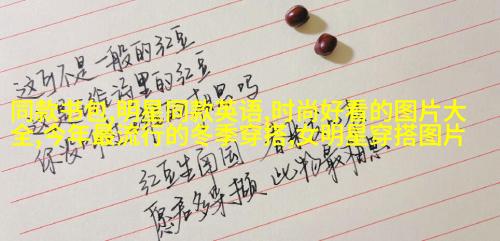 这可不是一般的红豆
诗里的红豆
同款书包,明星同款英语,时尚好看的图片大
全,今年最流行的冬季穿搭,女明星穿搭图片
相思吗
红豆生南国 春来
愿君多采撷 此物最相思